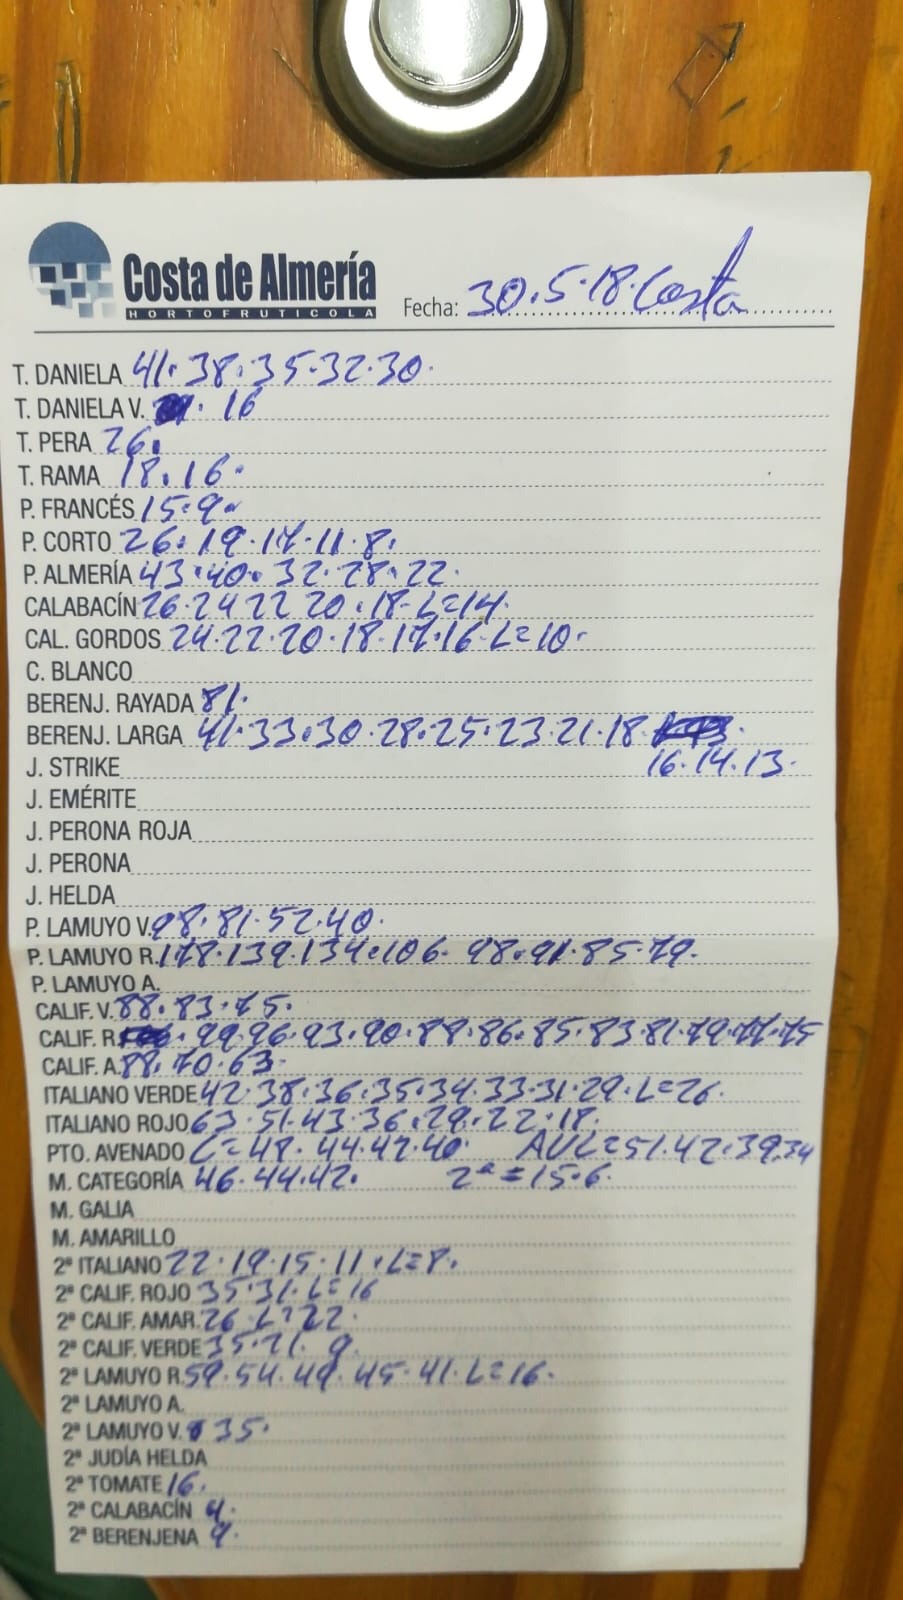 Costa de Almería
HORTOFRUTICOLA
Fecha: 30.5.18. Costa
T. DANIELA 41.38.35.32.30.
T. DANIELA V. 16
T. PERA 26.
T. RAMA 18.16.
P. FRANCÉS 15.9.
P. CORTO 26.19.17.11.8.
P. ALMERÍA 43.40.32.28.22.
CALABACÍN 26.24 22 20.18-L=14.
CAL. GORDOS 24.22.20.18.17.16-L=10.
C. BLANCO
BERENJ. RAYADA 81.
BERENJ. LARGA 41.33.30.28.25.23.21.18
16.14.13.
J. STRIKE
J. EMÉRITE
J. PERONA ROJA
J. PERONA
J. HELDA
P. LAMUYO V. 98.81.52.40.
P. LAMUYO R. 178.139.134.106. 98.91.85.79.
P. LAMUYO A.
CALIF. V. 88.83.75.
CALIF. R. 99.96.93.90.88.86.85.83.81.79.77.75
CALIF. A. 88.70.63.
ITALIANO VERDE 42.38.36.35.34.33.31.29.L=26.
ITALIANO ROJO 63.51.43.36.29.22.18.
PTO. AVENADO L=48.44.42.40. AVL=51.42.39.34
M. CATEGORÍA 46.44.42. 2ª=15.6.
M. GALIA
M. AMARILLO
2ª ITALIANO 22.19.15.11.L=8.
2ª CALIF. ROJO 35.31.L=16
2ª CALIF. AMAR. 26.L=22.
2ª CALIF. VERDE 35.21. 9.
2ª LAMUYO R. 59.54.49.45.41.L=16.
2ª LAMUYO A.
2ª LAMUYO V. 35.
2ª JUDÍA HELDA
2ª TOMATE 16.
2ª CALABACÍN 4.
2ª BERENJENA 9.